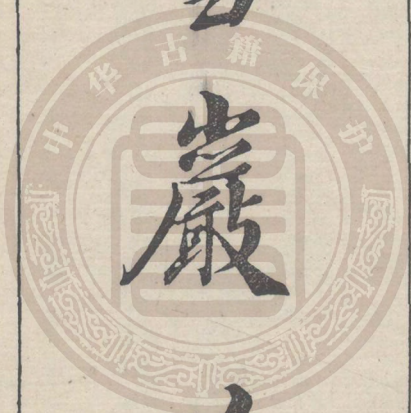 巖
中华古籍保护